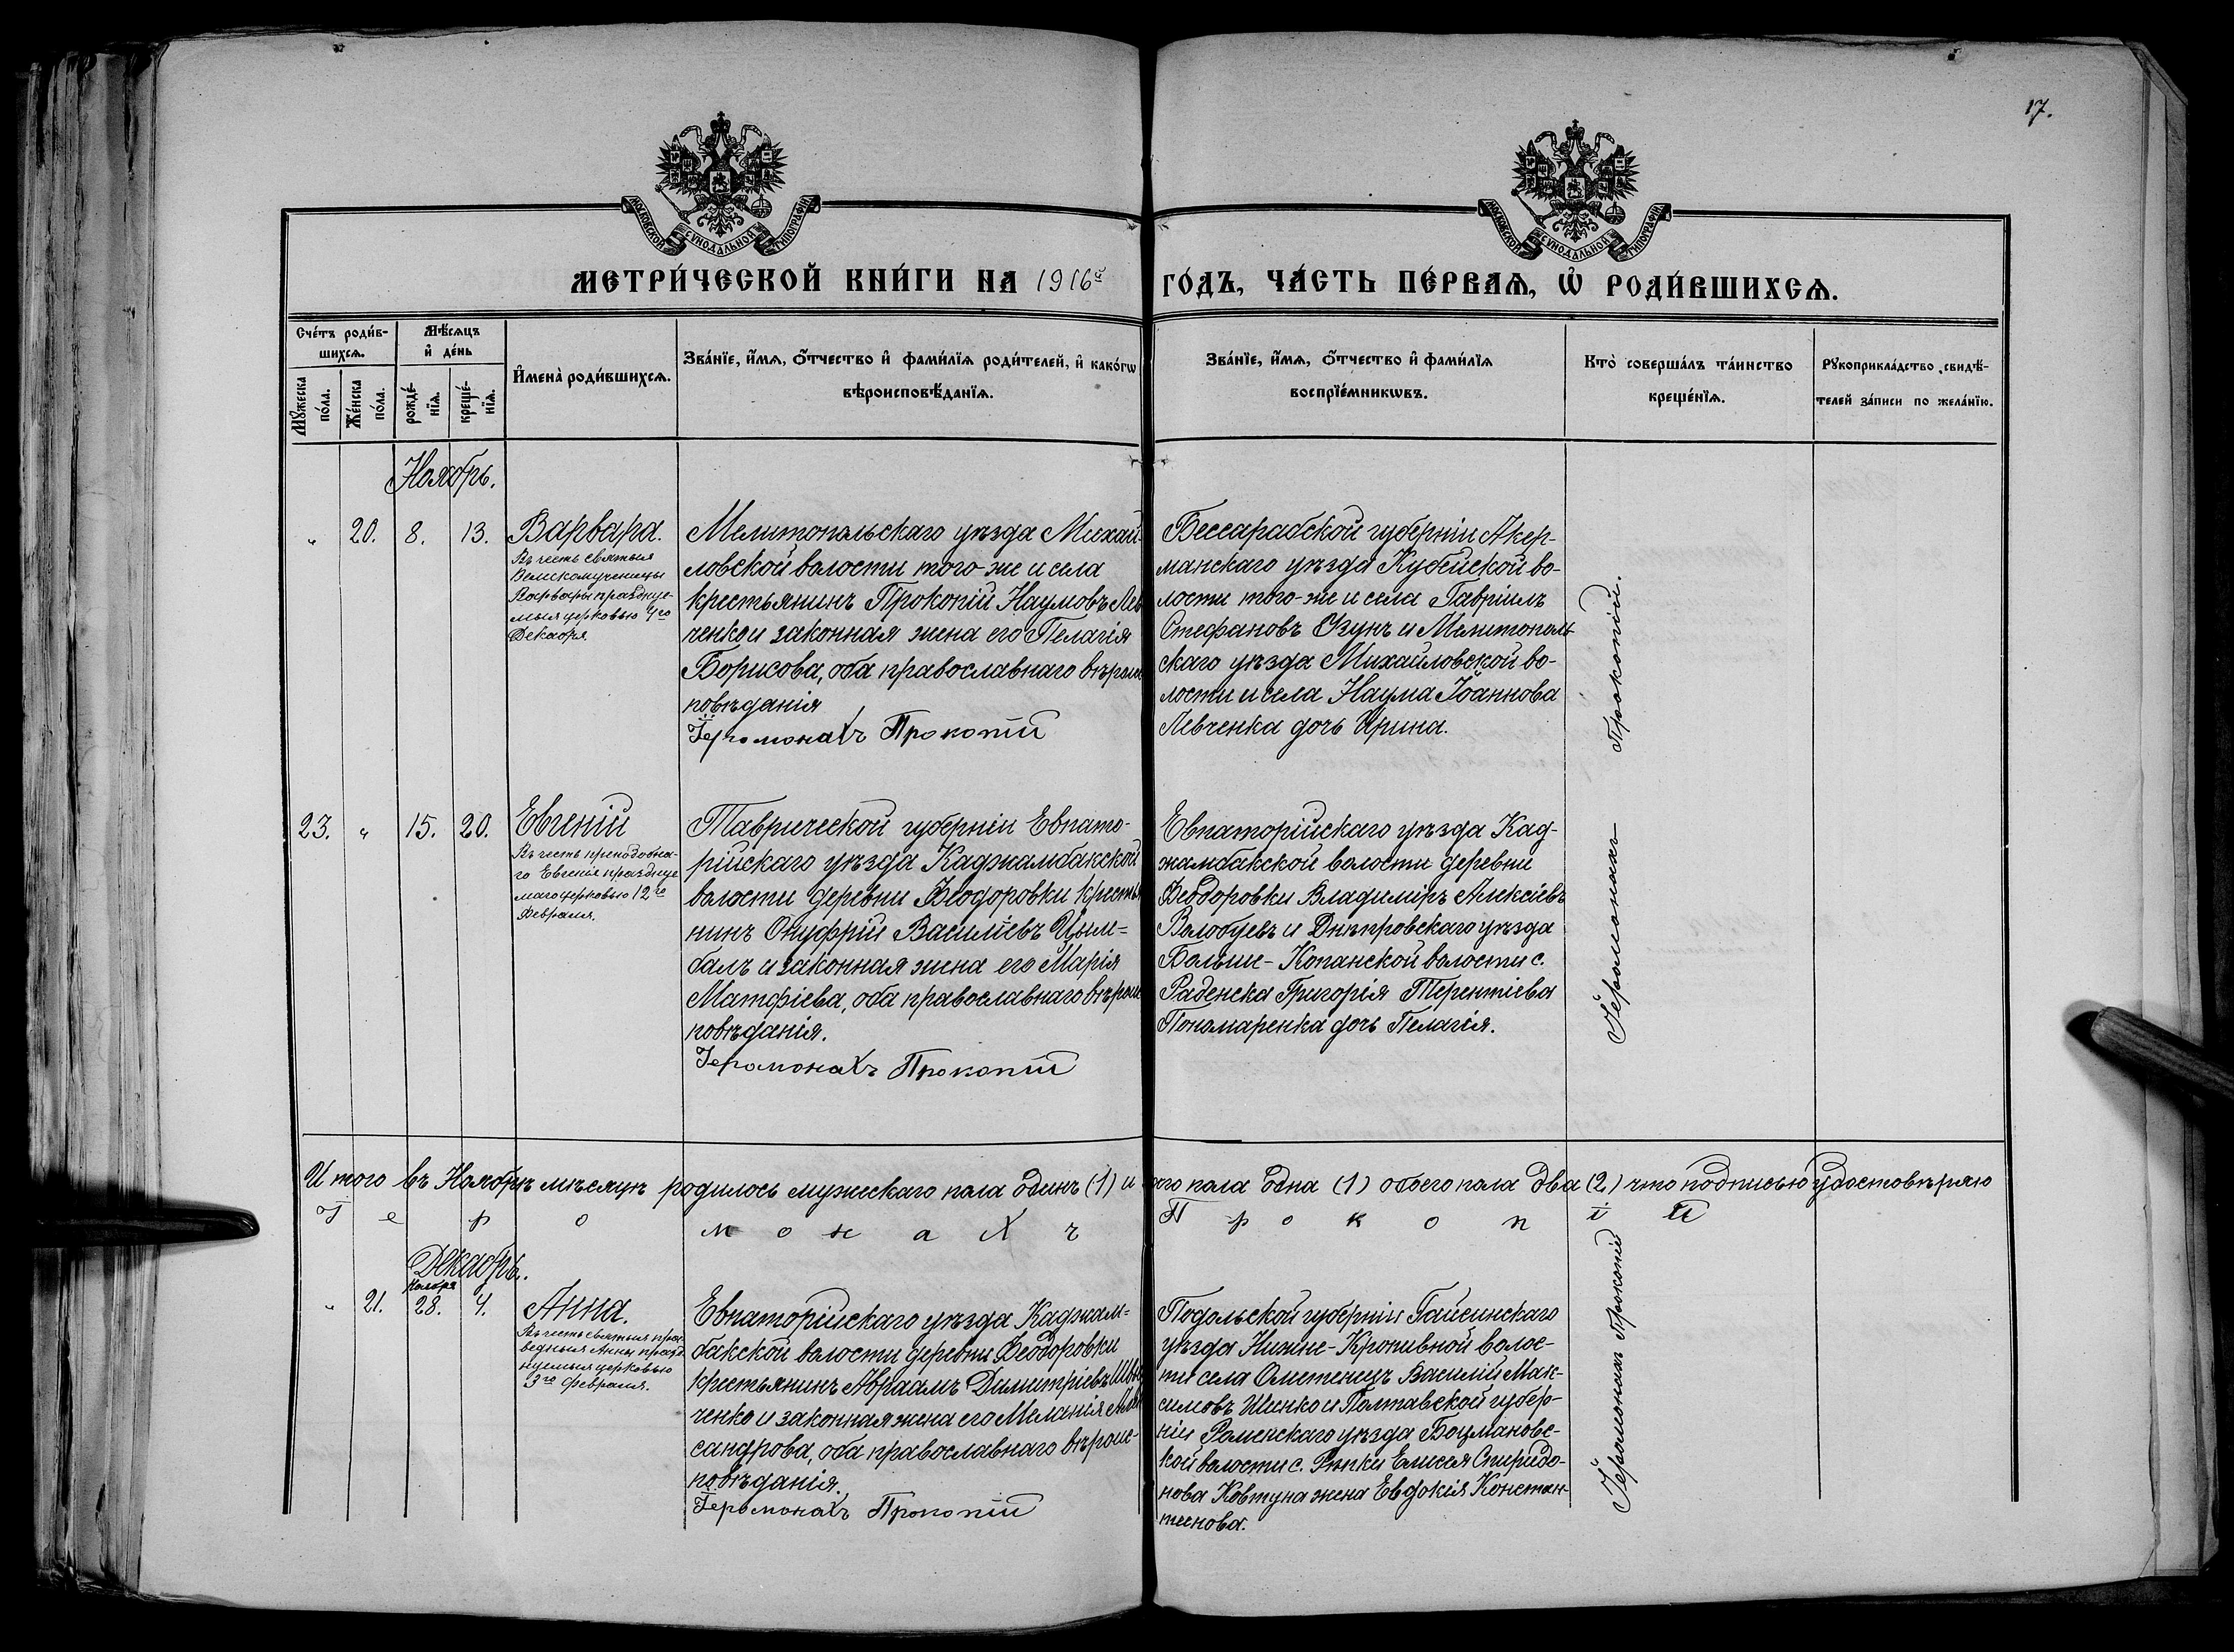 17.
МОСКОВСКОЙ СУНОДАЛЬНОЙ ТИПОГРАФІИ
МОСКОВСКОЙ СУНОДАЛЬНОЙ ТИПОГРАФІИ
МЕТРИ́ЧЕСКОЙ КНИ́ГИ НА 1916й ГО́ДЪ, ЧА́СТЬ ПЕ́РВАѦ, Ѡ҆ РОДИ́ВШИХСѦ.
Сче́тъ роди́в-
шихсѧ.
Мѣ́сѧцъ
и҆ де́нь
Мꙋжеска
по́ла.
Же́нска
по́ла.
рожде́-
нїѧ.
креще́-
нїѧ.
И҆мена̀ роди́вшихсѧ.
Зва́нїе, и҆́мѧ, ѻ҆́тчество и҆ фами́лїѧ роди́телей, и҆ како́гѡ
вѣроисповѣ́данїѧ.
Зва́нїе, и҆́мѧ, ѻ҆́тчество и҆ фами́лїѧ
воспрїе́мникѡвъ.
Кто̀ соверша́лъ та́инство
креще́нїѧ.
Рꙋкоприкла́дство свидѣ́-
телей за́писи по жела́нїю.
Ноябрь.
„ 20. 8. 13. Варвара.
Въ честь святыя
Великомученицы
Варвары праздnуе-
мыя церковью 4го
Декабря.
Мелитопольскаго уѣзда Михай-
ловской волости того-же и села
крестьянинъ Прокопій Наумовъ Лев
ченко и законная жена его Пелагія
Борисова, оба православнаго вѣроис
повѣданія
Іеромонахъ Прокопій
Бессарабской губерніи Акер-
манскаго уѣзда Кубейской во-
лости того-же и села Гавріилъ
Стефановъ Озунъ и Мелитополь
скаго уѣзда Михайловской во-
лости и села Наума Іоаннова
Левченка дочь Ирина.
23. „ 15. 20. Евгеній
Въ честь преподобна-
го Евгенія праздnуе
маго церковью 12го
Февраля.
Таврической губерніи Евпато-
рійскаго уѣзда Каджамбакской
волости деревни Ѳеодоровки крестья
нинъ Онуфрій Василіевъ Цым-
балъ и законная жена его Марія
Матфіева, оба православнаго вѣроис
повѣданія.
Іеромонахъ Прокопій
Евпаторійскаго уѣзда Кад-
жамбакской волости деревни
Ѳеодоровки Владиміръ Алексіевъ
Волобуевъ и Днѣпровскаго уѣзда
Больше-Копанской волости с.
Раденска Григорія Терентіева
Пономаренка дочь Пелагія.
Іеромонахъ Прокопій.
Итого въ Ноябрѣ мѣсяцѣ родилось мужескаго пола одинъ (1) и ого пола одна (1) обоего пола два (2) что подписью удостовѣряю
Іеромонахъ Прокопій
Декабрь.
Ноября
„ 21. 28. 4. Анна.
Въ честь святыя пра-
ведныя Анны празд
нуемыя церковью
3го Февраля.
Евпаторійскаго уѣзда Каджам-
бакской волости деревни Ѳеодоровки
крестьянинъ Авраамъ Димитріевъ
ченко и законная жена его Меланія Алек
сандрова, оба православнаго вѣроис-
повѣданія.
Іеромонахъ Прокопій
Подольской губерніи Гайсинскаго
уѣзда Нижне-Кропивной волос-
ти села Василій Мак-
симовъ Шинко и Полтавской губер-
ніи Роменскаго уѣзда Боцмановс-
кой волости с. Рѣпки Елисея Спиридо-
нова Ковтуна жена Евдокія Констан-
тинова.
Іеромонахъ Прокопій